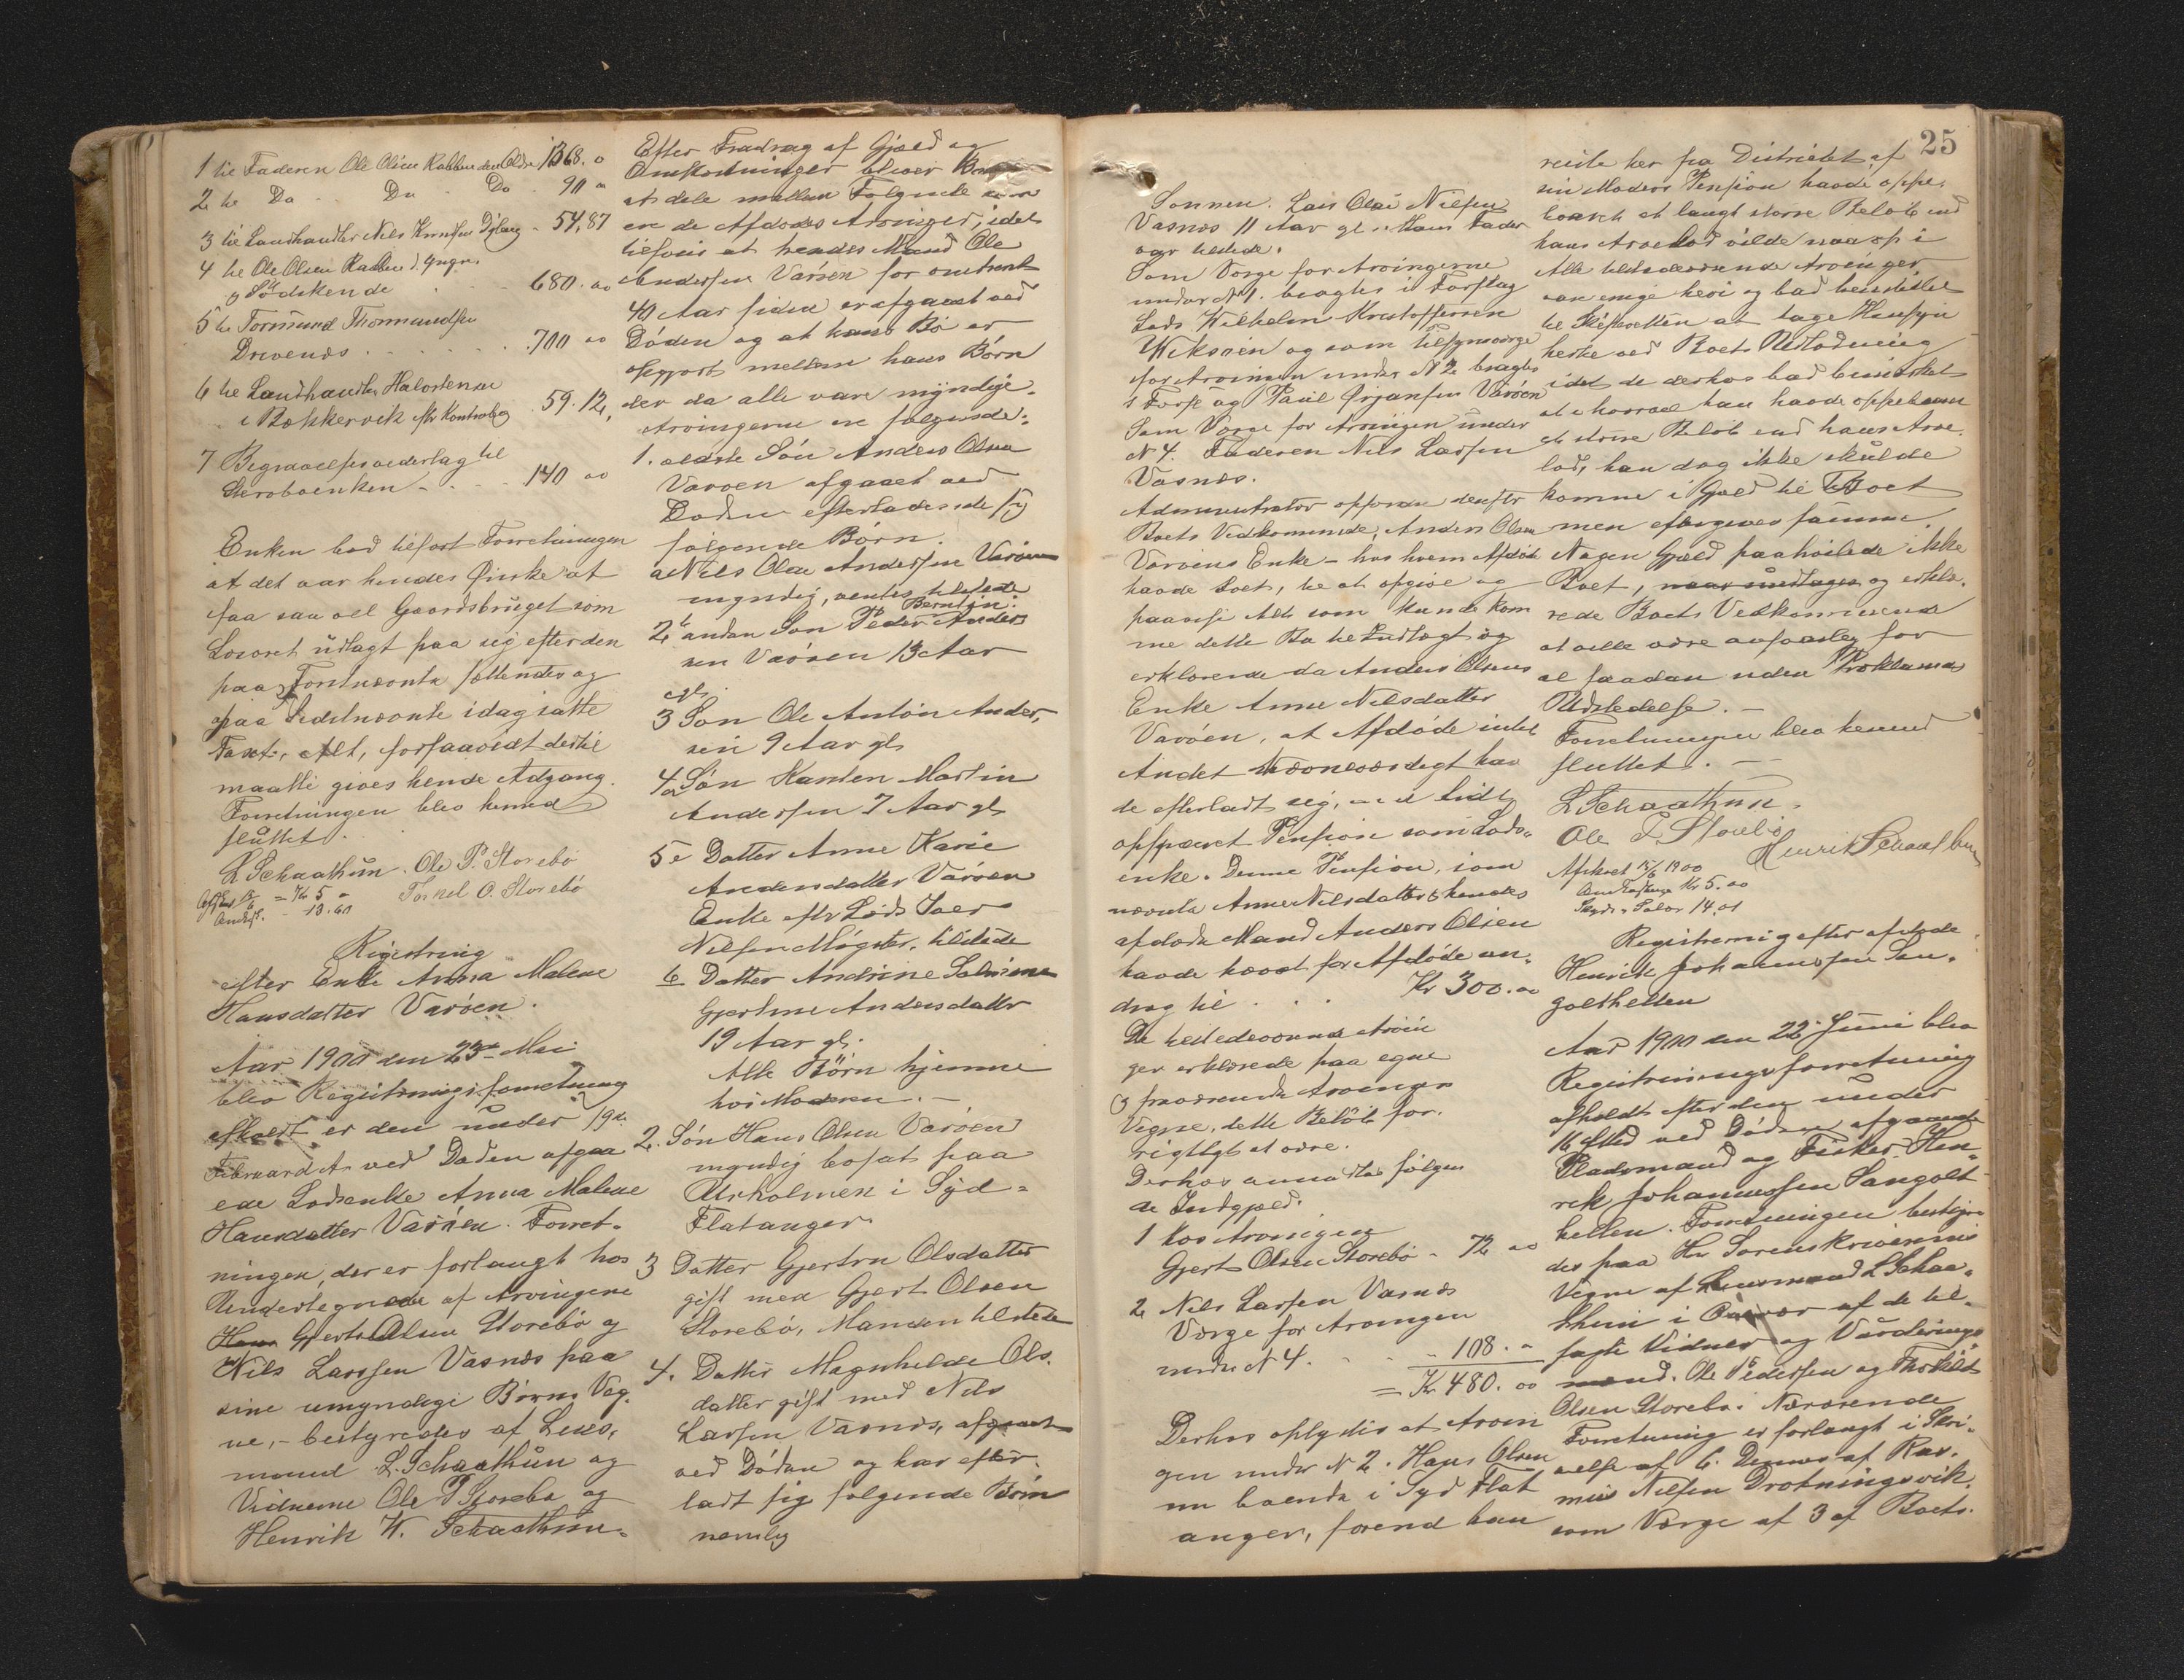 1 til Faderen Ole Olsen Rabben den Ældre 1368.0
2 til Do Do Do 90 "
3 til Landhandler Nils Knudsen - 54,87
4 til Ole Olsen Rabben d. Yngre
og Södskende 680.00
5 til Tormund Thormundsen
Drivenæs . . . . . 700 00
6 til Landhandler Halvorsen
i Bækkervik efter Kontrabog 59.12,
7 Begravelsesvederlag til
Stervboenken - . - - 140 00
Enken bad tilført Forretningen
at det var hendes Ønske at
faa saavel Gaardsbruget som
Løsøret udlagt paa sig efter den
paa Førstnævnte sættendes og
paa Sidstnævnte idag satte
Taxt, Alt, forsaavidt dertil
maatte gives hende Adgang.
Forretningen blev hermed
sluttet.
L Schaathun. Ole P. Storebö
Torkel O. Storebö
= Kr 5 "
- 13.60
Registrering
efter Enke Anna Malene
Hansdatter Varöen.
Aar 1900 den 23de Mai
blev Registreringsforretning
afholdt er den under 19de
Februar d.A. ved Döden afgaa
ede Lodsenke Anna Malene
Hansdatter Varöen. Forret-
ningen, der er forlangt hos
Undertegnede af Arvingerne
Hans Gjert Olsen Storebö og
Nils Larssen Vasnæs paa
sine umyndige Börns Veg
ne, - bestyredes af Lens-
mand L. Schaathun og
Vidnerne Ole P Storebö og
Henrik W. Schaathun.
Efter Fradrag af Gjæld og
Omkostninger bliver Boet
at dele mellem Følgende som
er de Afdødes Arvinger, idet
tilføies at hendes Mand Ole
Andersen Varöen for omtrent
40 Aar siden er afgaaet ved
Döden og at hans Bo er
opgjort mellem hans Börn
der da alle vare myndige.
Arvingerne ere følgende:
1. ældste Sön Anders Olsen
Varöen afgaaet ved
Döden efterladende sig
følgende Börn.
a Nils Olai Andersen Varöen
myndig, ventes tilstede.
Berntin
2 anden Son Peder Anders
sen Varöen 13 Aar
gl.
3 Son Ole Anton Ander,
sen 9 Aar gl
4 Sön Karsten Martin
Andersen 7 Aar gl
5e Datter Anne Karie
Andersdatter Varöen
Enke eftr Lods Iver
Nilsen Mögster, tilstede
6 Datter Andrine Salmine
Gjertine Andersdatter
19 Aar gl.
Alle Börn hjemme
hos Moderen. -
2. Sön Hans Olsen Varöen
myndig bosat paa
Uxholmen i Syd-
Flatanger
3 Datter Gjertru Olsdatter
gift med Gjert Olsen
Storebö, Manden tilstede
4. Datter Magnhilde Ols.
datter gift med Nils
Larsen Vasnæs, afgaaet
ved Döden og har efter-
ladt sig følgende Börn
nemlig
Sønnen. Lars Olai Nilsen
Vasnæs 11 Aar gl. Hans Fader
var tilstede.
Som Værge for Arvingerne
under N 1. bragtes i Forslag
Lods Wilhelm Kristoffersen
Wiksöen og som Tilsynsværge
for Arvingen under N 2 bragtes
i Forsl og Paul Ørjansen Varöen
Som Værge for Arvingen under
N 4. Faderen Nils Larsen
Vasnæs.
Administrator opfordrede derefter
Boets Vedkommende, Anders Olsen
Varöens Enke - hos hvem Afdöde
havde boet, til at opgive og
paavise Alt som kunde kom
me dette Bo til Indtægt og
erklærede da Anders Olsens
Enke Anne Nilsdatter
Varöen, at Afdöde intet
Andet nævneværdigt hav
de efterladt sig, end lidt
opsparet Pension som Lods-
enke. Denne Pension, som
nævnte Anne Nilsdatter & hendes
afdöde Mand Anders Olsen
havde hævet for Afdöde an-
drog til . . . Kr 300.00
De tilstedeværende Arvin
ger erklærede paa egne
og fraværende Arvingers
Vegne, dette Belöb for
rigtigt at være.
Derhos anmeldtes følgen
de Indgjæld.
1 hos Arvingen
Gjert Olsen Storebö - 72 00
2 Nils Larsen Vasnæs
Værge for Arvingen
under N 4. . . . - 108. "
= Kr 480.00
Derhos oplystes at Arvin
gen under N 2. Hans Olsen
nu boende i Syd Flat
anger, forend han
25
reiste her fra Distriktet af
sin Moders Pension havde oppe-
baaret et langt större Belöb end
hans Arvelod vilde naa op i
Alle tilstedeværende Arvinger
vare enige heri og bad henstillet
til Skifteretten at tage Hensyn
herte ved Boets Udlodning
idet de derhos bad bemærket
at i hvorvel han havde oppebaaret
et större Belöb end hans Arve
lod, han dog ikke skulde
komme i Gjæld til Boet
men eftergives samme.
Nogen Gjæld paahvilede ikke
Boet, og erklæ-
rede Boets Vedkommende
at ville være ansvarlig for
al saadan uden Proklamas
Udstedelse. -
Forretningen blev hermed
sluttet. -
L Schaathun.
Ole P. Storebö
Henrik Schaathun
Afskrevet 15/6 1900
Kr 5.00
14.01
Registrering efter afdøde
Henrik Johannessen San-
golthellen
Aar 1900 den 22de Juni blev
Registreringsforretning
afholdt efter den under
16 ved Döden afgaaede
Pladsmand og Fisker Hen-
rik Johannessen Sangolt
hellen. Forretningen bestyre
des paa Hr Sorenskriverens
Vegne af Lensmand L Schaa-
thun i af de til-
sagte Vidner og Vurderings
mænd. Ole Pedersen og Thorkild
Olsen Storebö. Nærværende
Forretning er forlangt i Skri-
velse af 6. Dennes af Ras-
mus Nilsen Drotningsvik.
som Værge af 3 af Boets.